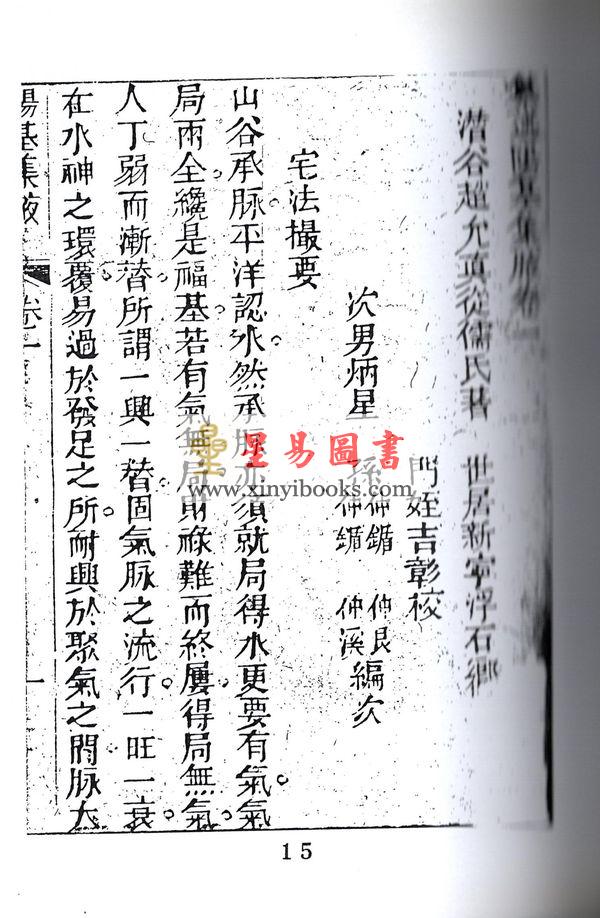 陽基集腋卷一
潛谷趙允真從儒氏著 世居新寧浮石鄉
門姪吉彰校
次男炳星 孫 仲良 仲溪 編次
宅法撮要
山谷承脉平洋認水然承脉亦須就局得水更要有氣氣
局兩全纔是福基若有氣無局財祿難而終屢得局無氣
人丁弱而漸替所謂一興一替固氣脉之流行一旺一衰
在水神之環覆易過於發足之所耐興於聚氣之間脉大
陽基集腋 卷一 一
星易圖書
www.xinyibooks.com
15